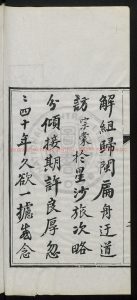 解組歸閩扁舟迂道
訪宗棠於星沙旅次略
分傾接期許良厚忽
忽四十年久欲一攄舊念